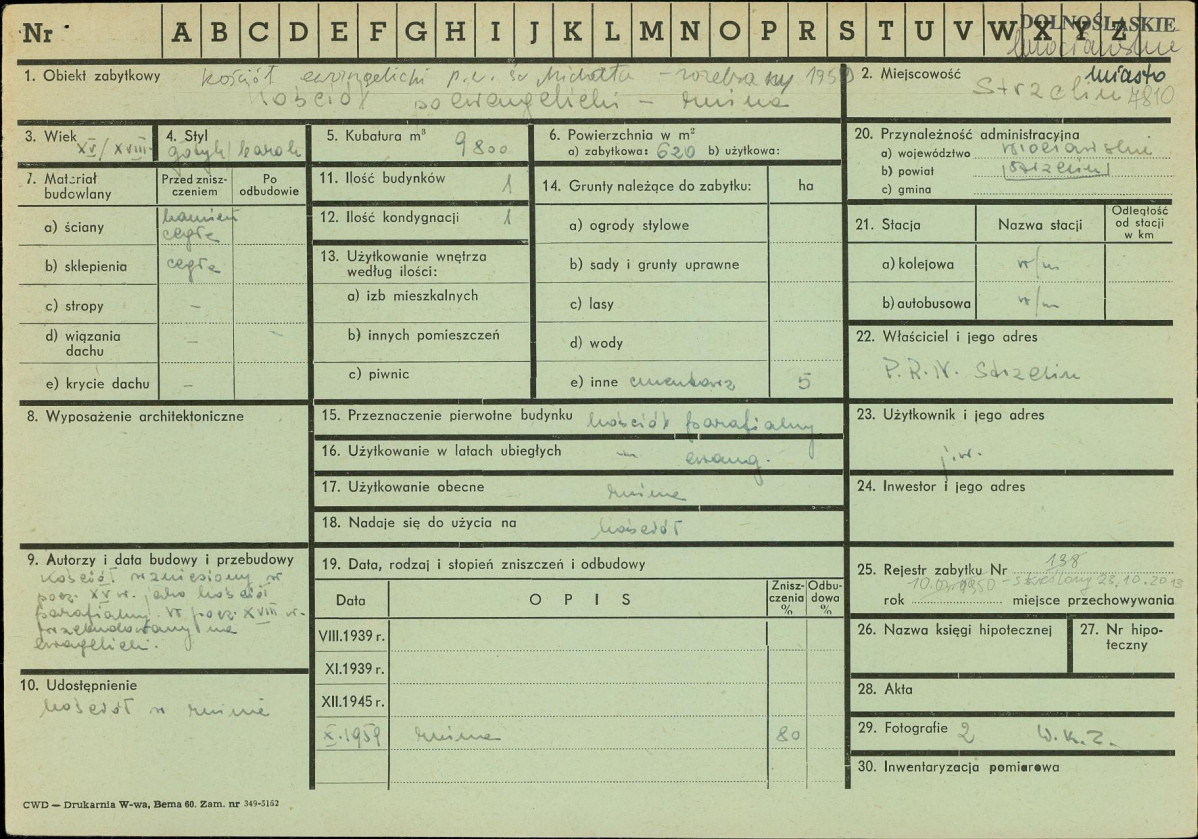 Nr A B C D E F G H I J K L M N O P R S T U V W X Y Z
DOLNOŚLĄSKIE
wrocławskie
1. Obiekt zabytkowy kościół ewangelicki p.w. św Michała - rozebrany
kościół poewangelicki – ruina
2. Miejscowość miasto
Strzelin 7810
3. Wiek XV/XVIII
4. Styl gotyk/barok
5. Kubatura m³ 9800
6. Powierzchnia w m²
a) zabytkowa: 620 b) użytkowa:
7. Materiał budowlany
Przed zniszczeniem
Po odbudowie
a) ściany kamień cegła
b) sklepienia cegła
c) stropy –
d) wiązania dachu – –
e) krycie dachu –
8. Wyposażenie architektoniczne
9. Autorzy i data budowy i przebudowy
Kościół wzniesiony w
pocz. XV w. jako kościół
parafialny. W pocz. XVIII w.
przebudowany na
ewangelicki.
10. Udostępnienie
kościół w ruinie
11. Ilość budynków 1
12. Ilość kondygnacji 1
13. Użytkowanie wnętrza
według ilości:
a) izb mieszkalnych
b) innych pomieszczeń
c) piwnic
14. Grunty należące do zabytku: ha
a) ogrody stylowe
b) sady i grunty uprawne
c) lasy
d) wody
e) inne cmentarz 5
15. Przeznaczenie pierwotne budynku kościół parafialny
16. Użytkowanie w latach ubiegłych –"– ewang.
17. Użytkowanie obecne ruina
18. Nadaje się do użycia na kościół
19. Data, rodzaj i stopień zniszczeń i odbudowy
Data OPIS Zniszczenia % Odbudowa %
VIII.1939 r.
XI.1939 r.
XII.1945 r.
X.1959 ruina 80
20. Przynależność administracyjna
a) województwo wrocławskie
b) powiat Strzelin
c) gmina
21. Stacja Nazwa stacji Odległość od stacji w km
a) kolejowa w/m
b) autobusowa w/m
22. Właściciel i jego adres
P.R.N. Strzelin
23. Użytkownik i jego adres
j.w.
24. Inwestor i jego adres
25. Rejestr zabytku Nr 138
1950 - skreślony 23.10.2013
rok miejsce przechowywania
26. Nazwa księgi hipotecznej
27. Nr hipoteczny
28. Akta
29. Fotografie 2 W.K.Z.
30. Inwentaryzacja pomiarowa
CWD — Drukarnia W-wa, Bema 60. Zam. nr 349-5162